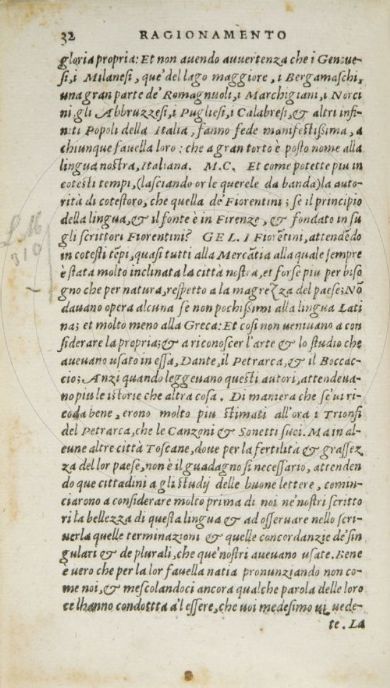 32 RAGIONAMENTO
gloria propria: Et non auendo auuertenza che i Genoue-
si, i Milanesi, que' del lago maggiore, i Bergamaschi,
una gran parte de' Romagnuoli, i Marchigiani, i Norci
ni, gli Abbruzzesi, i Pugliesi, i Calabresi, & altri infi-
niti Popoli della Italia, fanno fede manifestissima, a
chiunque fauella loro: che a gran torto è posto nome alla
lingua nostra, Italiana. M.C. Et come potette piu in
cotesti tempi, (lasciando or le querele da banda) la auto-
rità di cotestoro, che quella de' Fiorentini; se il principio
della lingua, & il fonte è in Firenze, & fondato in su
gli scrittori Fiorentini? GEL. I Fiorētini, attendēdo
in cotesti tēpi, quasi tutti alla Mercātia alla quale sempre
è stata molto inclinata la città nostra, et forse piu per biso
gno che per natura, respetto a la magrezza del paese; Nō
dauano opera alcuna se non pochissimi alla lingua Lati
na; et molto meno alla Greca: Et cosi non ueniuano a con
siderare la propria; & a riconoscer l'arte & lo studio che
aueuano usato in essa, Dante, il Petrarca, & il Boccac-
cio: Anzi quando leggeuano questi autori, attendeua-
no piu le istorie che altra cosa. Di maniera che se ui ri-
corda bene, erono molto piu stimati all'ora i Trionfi
del Petrarca, che le Canzoni & Sonetti suoi. Ma in al-
cune altre città Toscane, doue per la fertilità & grassez
za del lor paese, non è il guadagno sì necessario, attenden
do que cittadini a gli studij delle buone lettere, comin-
ciarono a considerare molto prima di noi ne' nostri scritto
ri la bellezza di questa lingua & ad osseruare nello scri-
uerla quelle terminazioni & quelle concordanzie de' sin
gulari & de plurali, che que' nostri aueuano usate. Bene
è uero che per la lor fauella natia pronunziando non co-
me noi, & mescolandoci ancora qualche parola delle loro
ce lhanno condottta a'l essere, che uoi medesimo ui uede-
te. La
L M
310